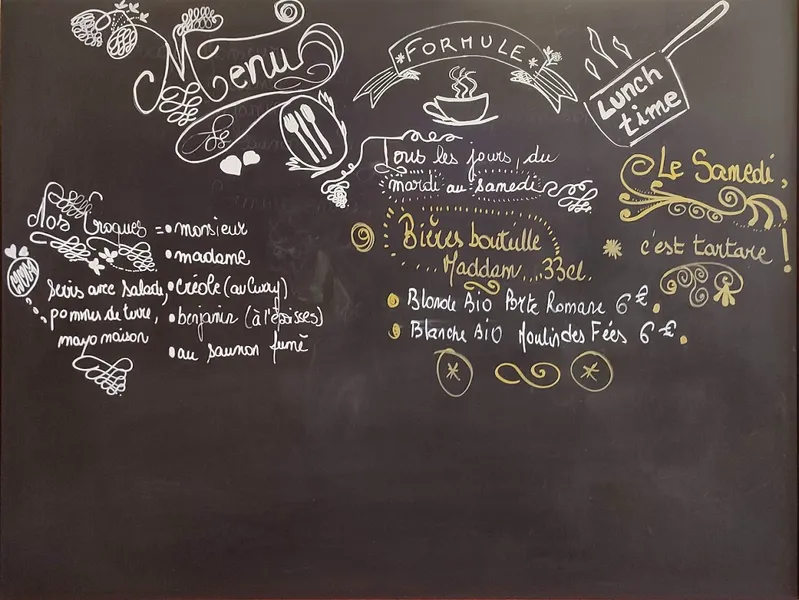 Menu
FORMULE
Lunch
time
Tous les jours, du
mardi au samedi
Le Samedi,
c'est tartare !
Nos Croques =
• monsieur
• madame
• créole (au curry)
• benjamin (à l'époisses)
• au saumon fumé
Servis avec salade,
pommes de terre,
mayo maison
Bières bouteille
Maddam 33cl.
• Blonde Bio Porte Romane 6 €.
• Blanche Bio Moulin des Fées 6 €.